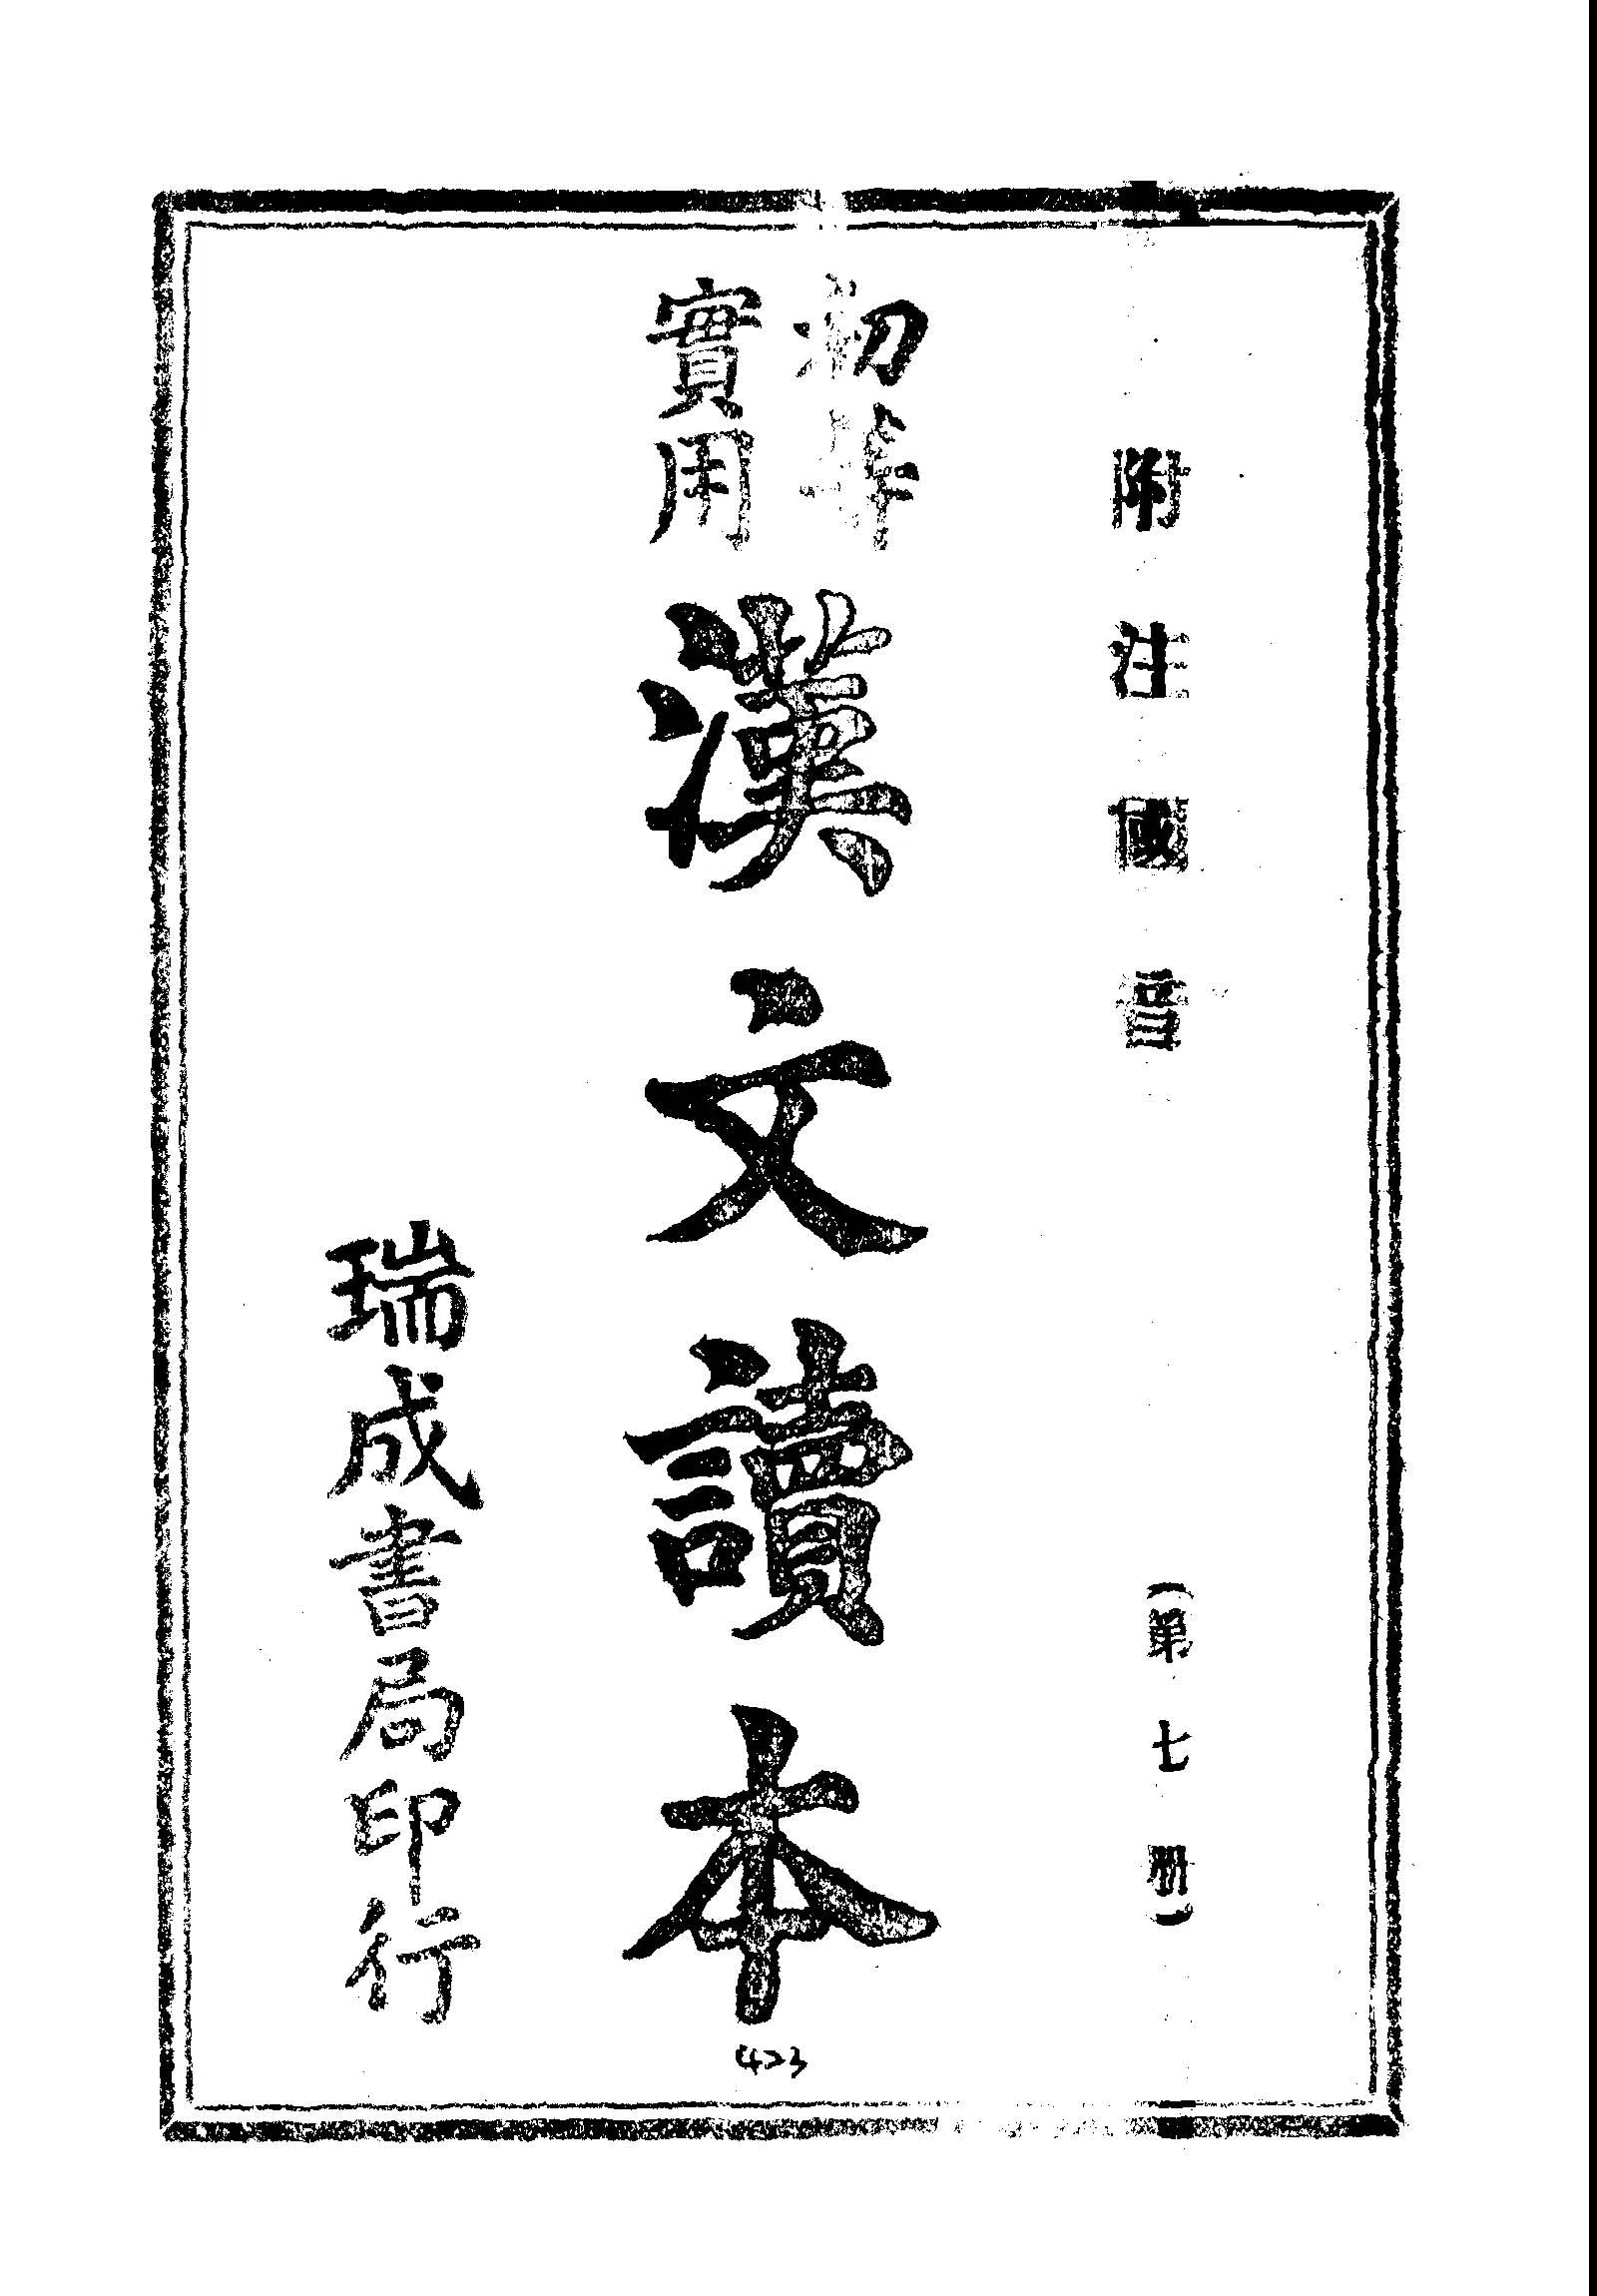 附注國音
(第七冊)
初等
實用
漢文讀本
瑞成書局印行
423